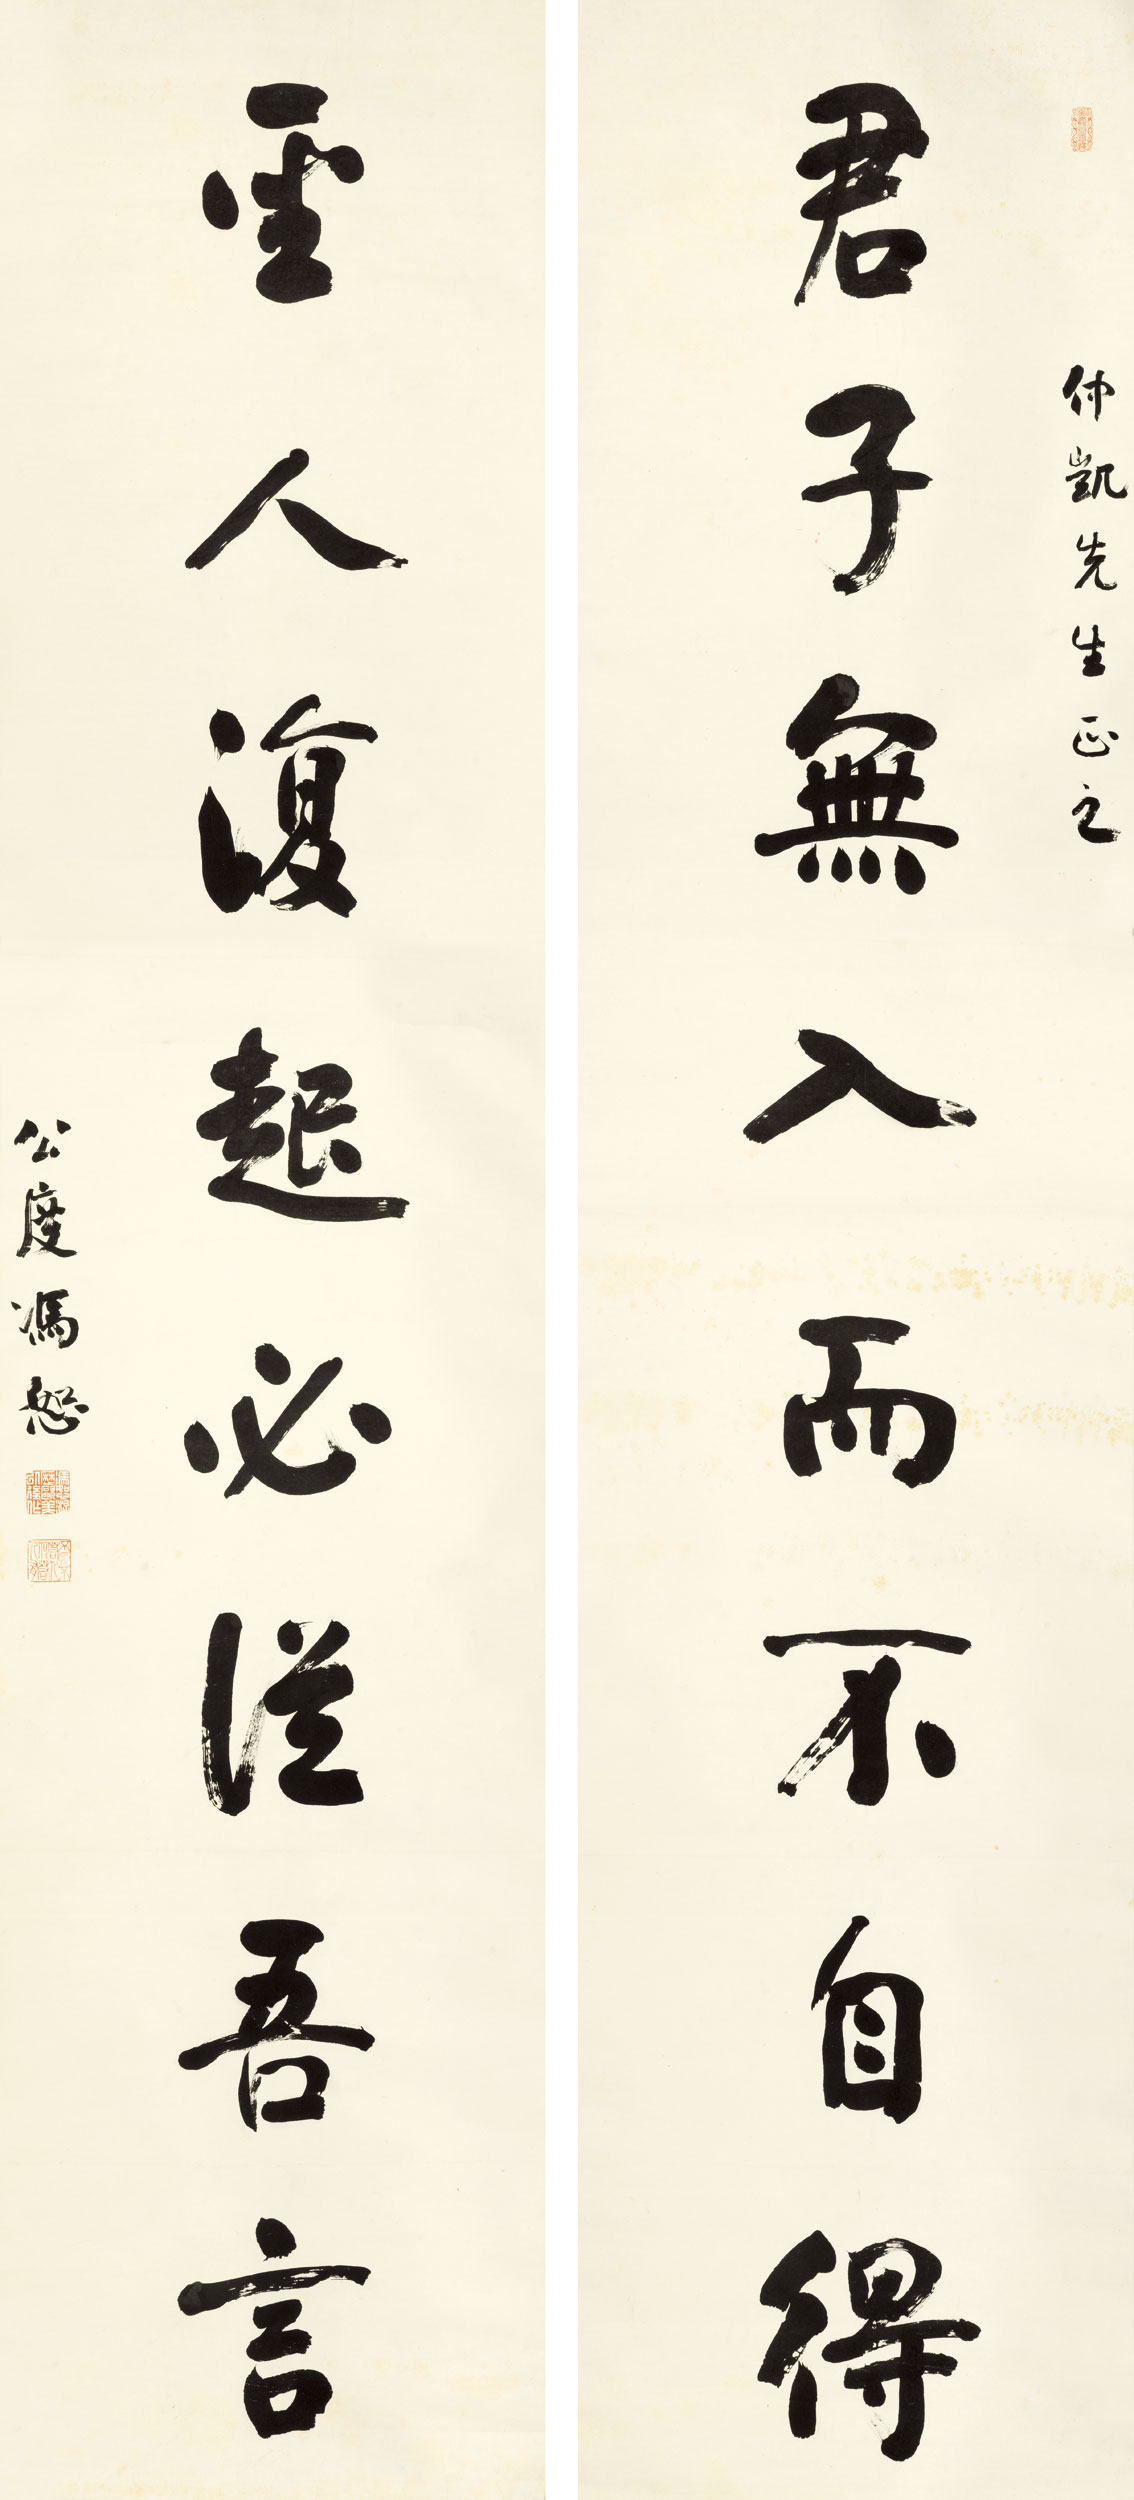 仲凱先生正之
君子無入而不自得
聖人復起必從吾言
公度馮恕